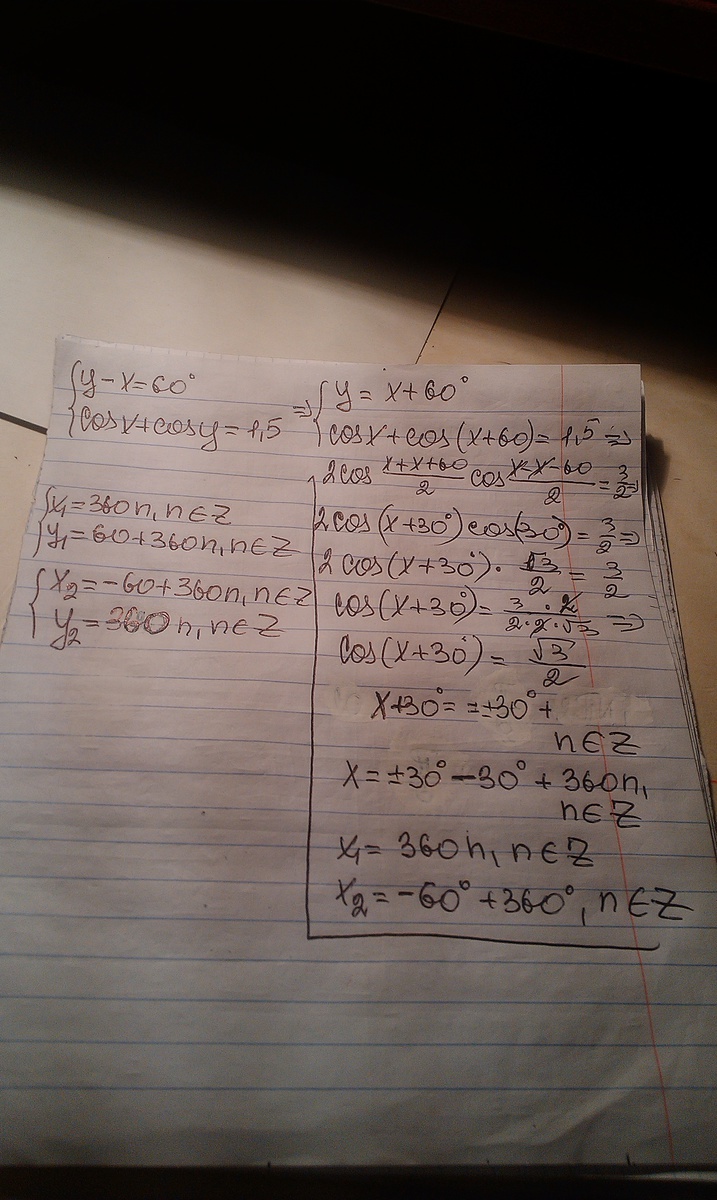 {y-x=60°
cosx+cosy=1,5 ⇒
{y=x+60°
cosx+cos(x+60)=1,5 ⇒
2cos (x+x+60)/2 cos (x-x-60)/2 = 3/2 ⇒
2cos(x+30°)cos(30°)=3/2 ⇒
2cos(x+30°)·√3/2=3/2
cos(x+30°)=3·2/2·2·√3 ⇒
cos(x+30°)=√3/2
x+30°=±±30°+
n∈Z
x=±30°-30°+360n,
n∈Z
x₁=360n, n∈Z
x₂=-60°+360°, n∈Z
{x₁=360n, n∈Z
y₁=60+360n, n∈Z
{x₂=-60+360n, n∈Z
y₂=360n, n∈Z